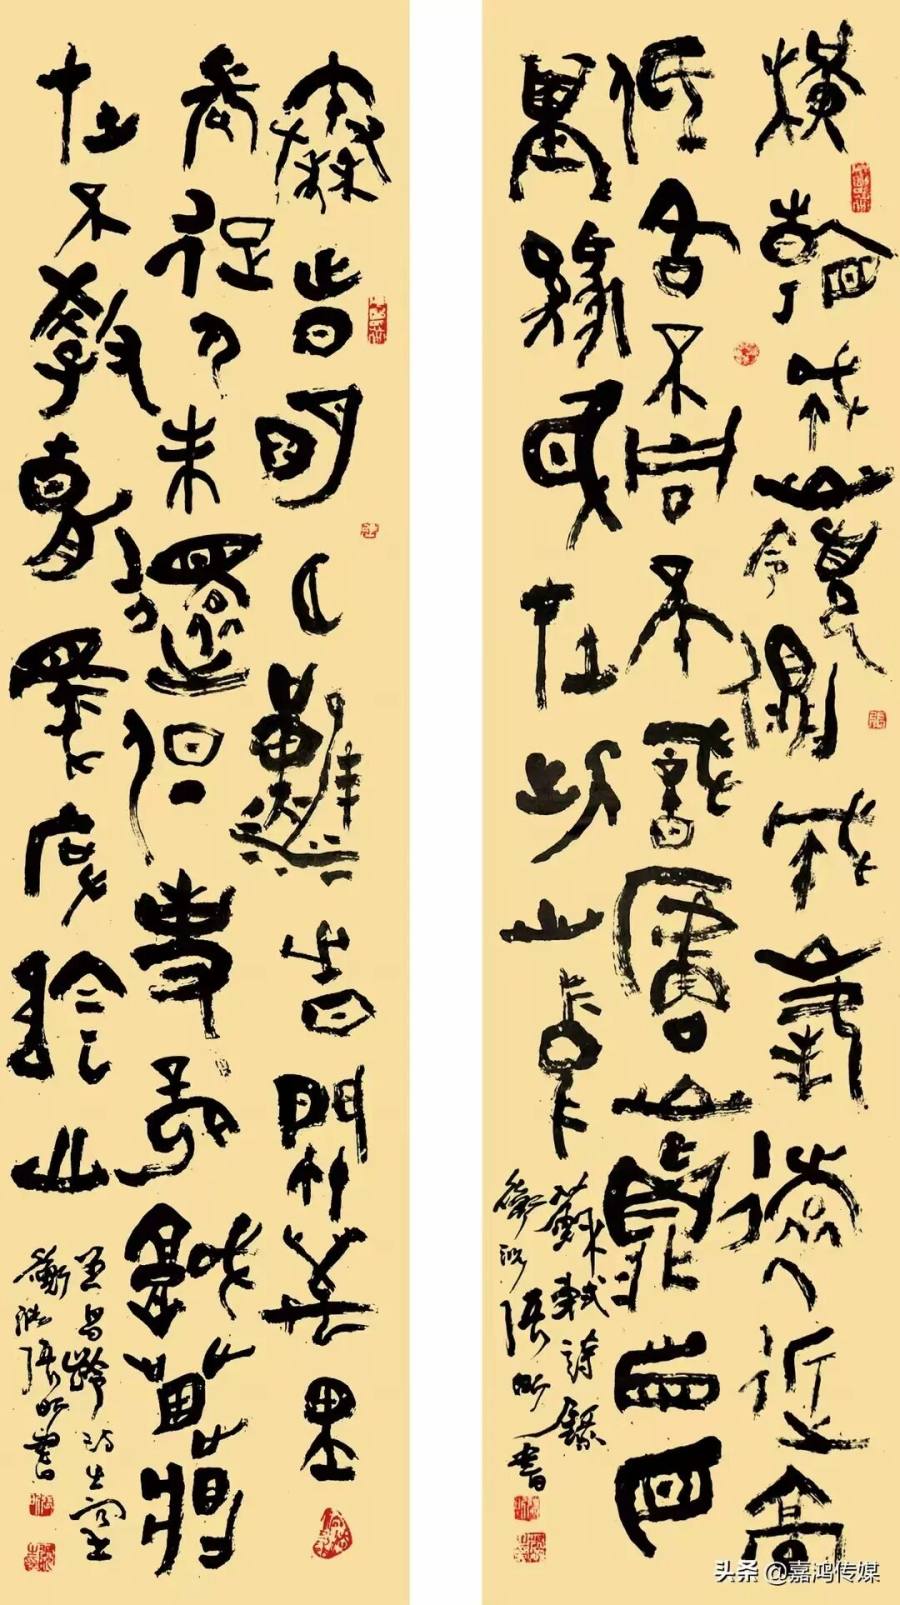 横看成嶺側成峯遠近高
低各不同不識廬山真面目
緣身在此山中
蘇軾詩錄
張書
秦時明月漢時關萬里
長征人未還但使龍城飛將
在不教胡馬度陰山
王昌齡詩出塞
張書
头条 @嘉鸿传媒